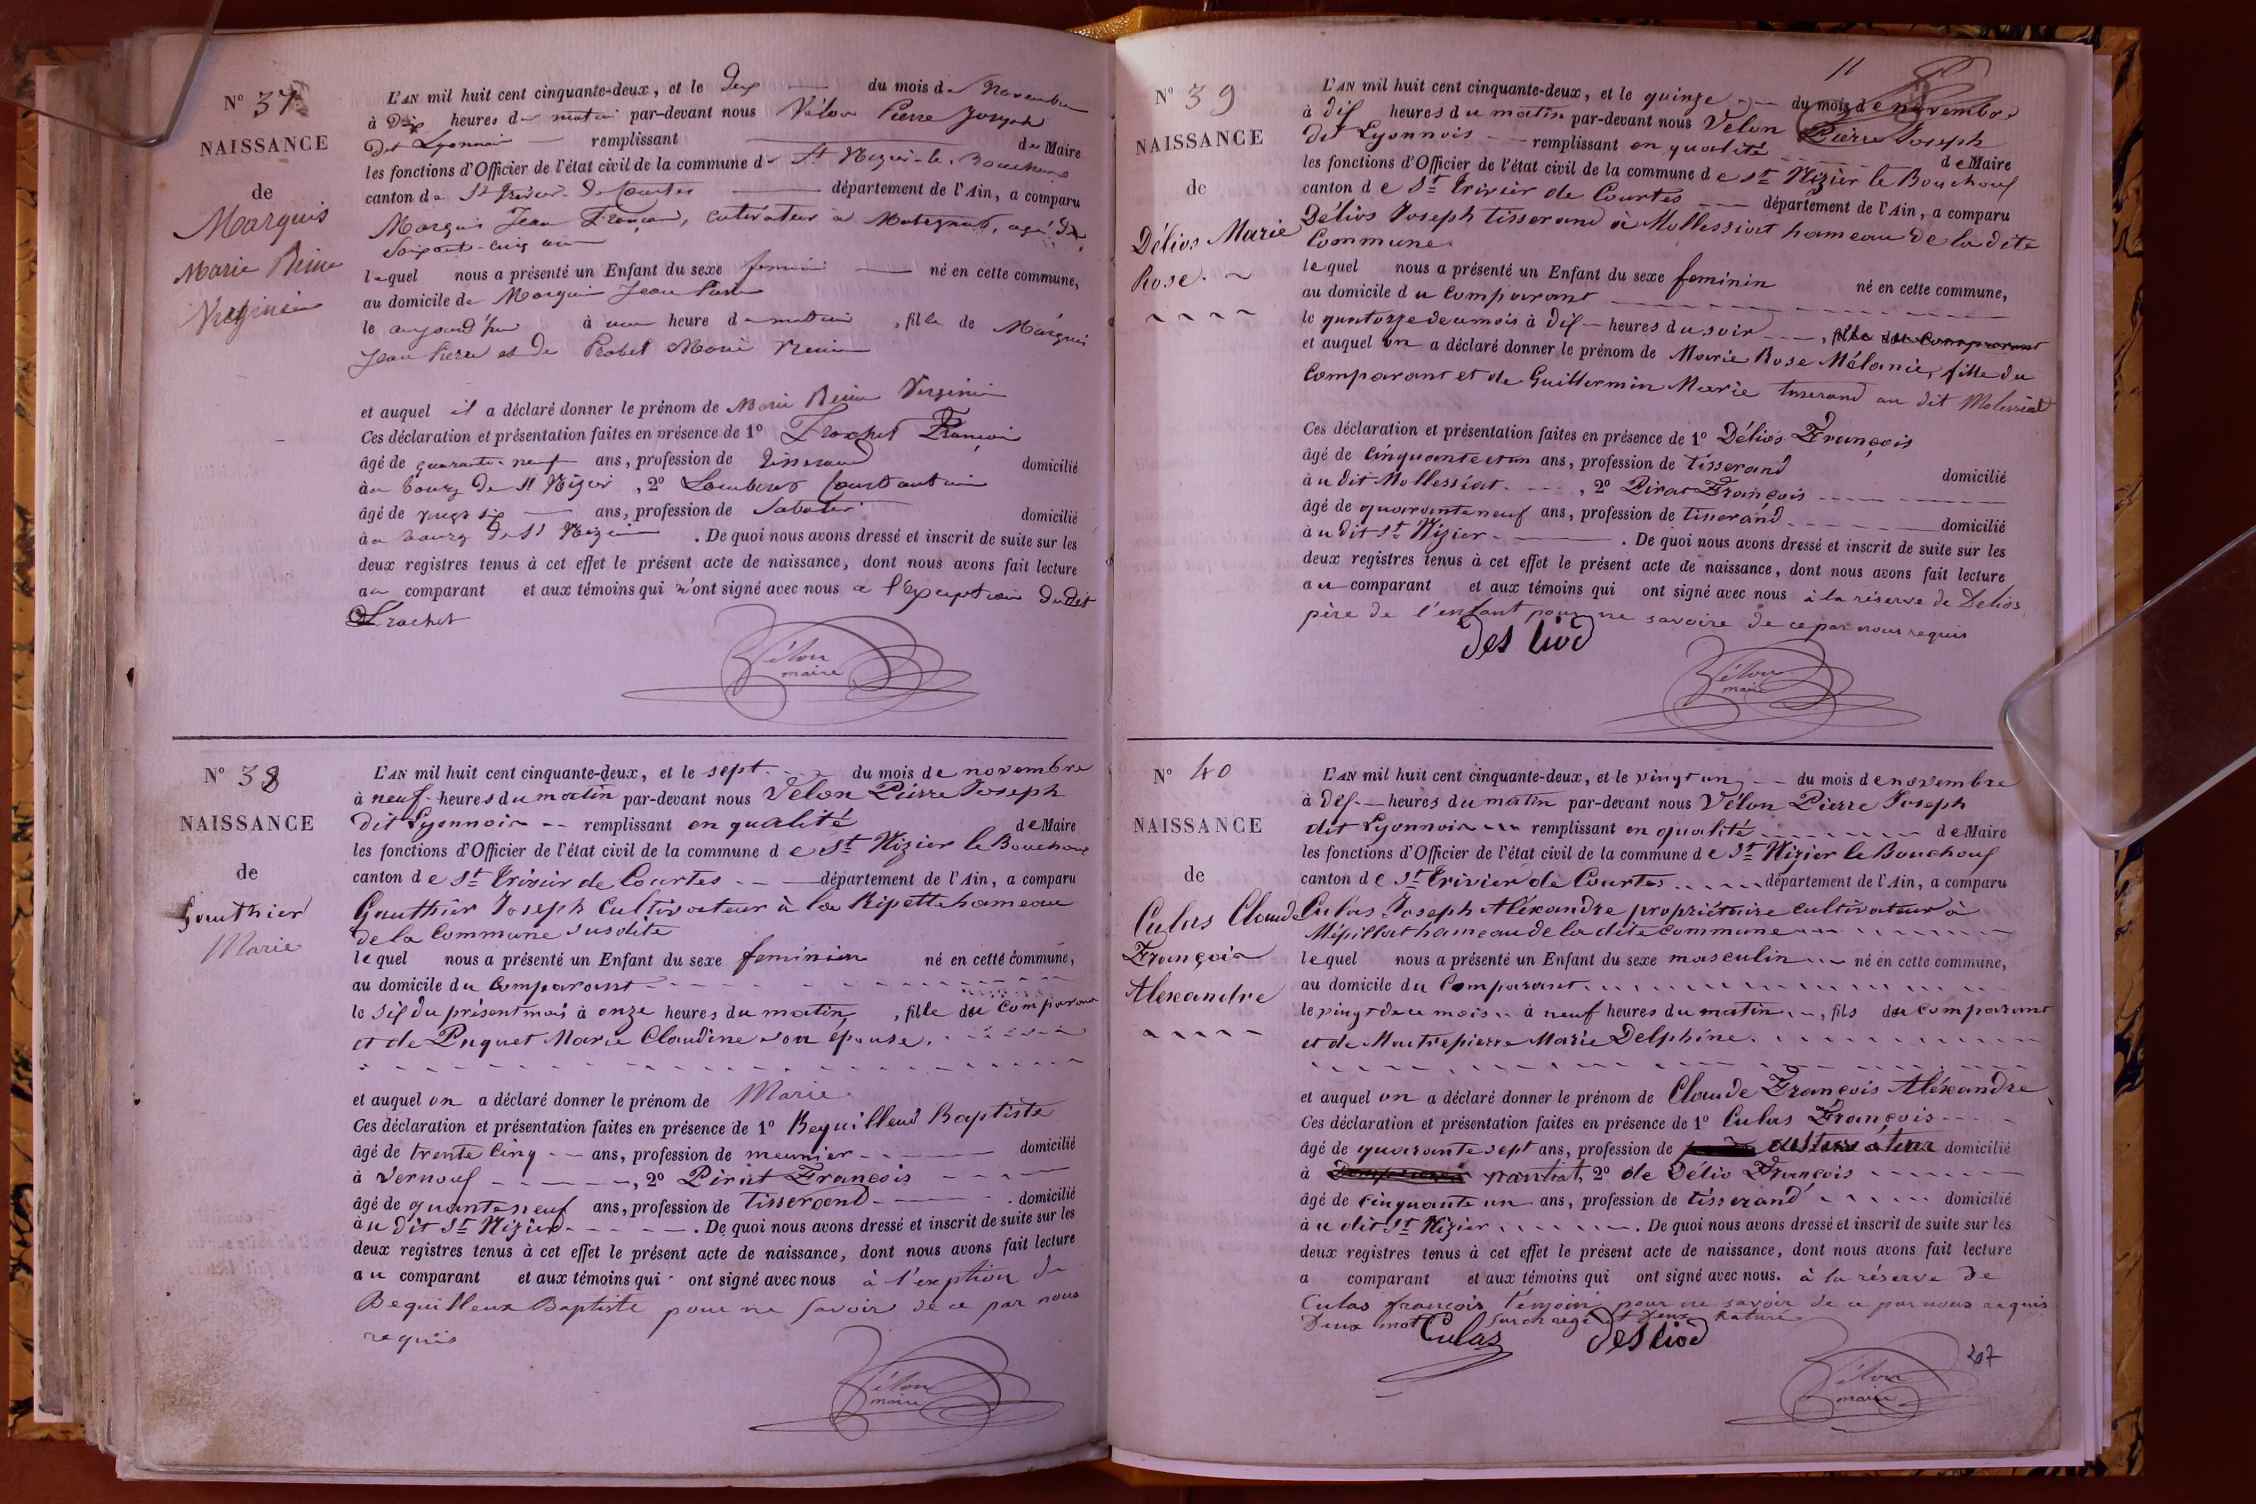 N° 37
NAISSANCE
de
Marquis
Marie Reine
Virginie
L'AN mil huit cent cinquante-deux, et le deux du mois de Novembre
à Dix heures du matin par-devant nous Vélon Pierre Joseph
dit Lyonnais remplissant de Maire
les fonctions d'Officier de l'état civil de la commune de St Nizier-le-Bouchoux
canton de St Trivier-de-Courtes département de l'Ain, a comparu
Marquis Jean François, cultivateur à agé de
soixante-cinq ans
lequel nous a présenté un Enfant du sexe feminin né en cette commune,
au domicile de Marquis Jean Pierre
le aujourd'hui à une heure du matin, fille de Marquis
Jean Pierre et de Probet Marie Reine
et auquel il a déclaré donner le prénom de Marie Reine Virginie
Ces déclaration et présentation faites en présence de 1° Frachet François
âgé de quarante-neuf ans, profession de Tisserand domicilié
au bourg de St Nizier, 2° Constantin
âgé de vingt six ans, profession de Sabotier domicilié
au bourg de St Nizier. De quoi nous avons dressé et inscrit de suite sur les
deux registres tenus à cet effet le présent acte de naissance, dont nous avons fait lecture
au comparant et aux témoins qui n'ont signé avec nous à l'exception dudit
Frachet
Vélon
maire
N° 38
NAISSANCE
de
Gauthier
Marie
L'AN mil huit cent cinquante-deux, et le sept du mois de novembre
à neuf heures du matin par-devant nous Vélon Pierre Joseph
dit Lyonnais remplissant en qualité de Maire
les fonctions d'Officier de l'état civil de la commune de St Nizier le Bouchoux
canton de St Trivier de Courtes département de l'Ain, a comparu
Gauthier Joseph Cultivateur à la Ripette hameau
de la Commune susdite
lequel nous a présenté un Enfant du sexe feminien né en cette commune,
au domicile du Comparant
le six du présent mois à onze heures du matin, fille du Comparant
et de Puguet Marie Claudine son épouse.
et auquel on a déclaré donner le prénom de Marie
Ces déclaration et présentation faites en présence de 1° Bequilleux Baptiste
âgé de trente Cinq ans, profession de meunier domicilié
à Vernoux, 2° Pirat François
âgé de quanteneuf ans, profession de Tisserand domicilié
àu dit St Nizier. De quoi nous avons dressé et inscrit de suite sur les
deux registres tenus à cet effet le présent acte de naissance, dont nous avons fait lecture
au comparant et aux témoins qui ont signé avec nous à l'exption de
Bequilleux Baptiste pour ne savoir de ce par nous
requis
Vélon
maire
11
N° 39
NAISSANCE
de
Délios Marie
Rose
L'AN mil huit cent cinquante-deux, et le quinze du mois de novembre
à dix heures du matin par-devant nous Vélon Pierre Joseph
dit Lyonnois remplissant en qualité de Maire
les fonctions d'Officier de l'état civil de la commune de St Nizier le Bouchoux
canton de St Trivier de Courtes département de l'Ain, a comparu
Délios Joseph tisserand à Mollessiat hameau de la dite
Commune
lequel nous a présenté un Enfant du sexe feminin né en cette commune,
au domicile du Comparant
le quatorze de ce mois à dix heures du soir, fille du Comparant
et auquel on a déclaré donner le prénom de Marie Rose Mélanie, fille du
Comparant et de Guillermin Marie tisserand au dit Molessiat
Ces déclaration et présentation faites en présence de 1° Délios François
âgé de Cinquante et un ans, profession de tisserand domicilié
àu dit Mollessiat, 2° Pirat François
âgé de quaranteneuf ans, profession de tisserand domicilié
àu dit St Nizier. De quoi nous avons dressé et inscrit de suite sur les
deux registres tenus à cet effet le présent acte de naissance, dont nous avons fait lecture
au comparant et aux témoins qui ont signé avec nous à la réserve de Delios
père de l'enfant pour ne savoire de ce par nous requis
des liod
Vélon
maire
N° 40
NAISSANCE
de
Culas Claude
François
Alexandre
L'AN mil huit cent cinquante-deux, et le vingt un du mois de novembre
à dix heures du matin par-devant nous Vélon Pierre Joseph
dit Lyonnois remplissant en qualité de Maire
les fonctions d'Officier de l'état civil de la commune de St Nizier le Bouchoux
canton de St Trivier de Courtes département de l'Ain, a comparu
Culas Joseph Aléxandre propriétaire Cultivateur à
Mépillat hameau de la dite Commune
lequel nous a présenté un Enfant du sexe masculin né en cette commune,
au domicile du Comparant
le vingt de ce mois à neuf heures du matin, fils du Comparant
et de Montrepierre Marie Delphine
et auquel on a déclaré donner le prénom de Claude François Aléxandre
Ces déclaration et présentation faites en présence de 1° Culas François
âgé de quarante sept ans, profession de domicilié
à 2° de Délio François
âgé de Cinquante un ans, profession de tisserand domicilié
àu dit St Nizier. De quoi nous avons dressé et inscrit de suite sur les
deux registres tenus à cet effet le présent acte de naissance, dont nous avons fait lecture
a comparant et aux témoins qui ont signé avec nous. à la réserve de
Culas françois témoin pour ne savoir de ce par nous requis
Deux mots surchargé et deux raturé
Culas des liod
207
Vélon
maire